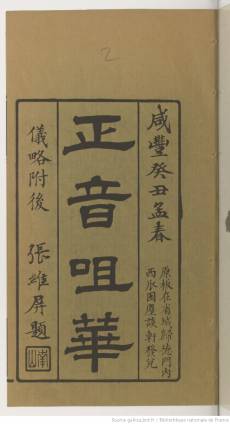 2
咸豐癸丑孟春
原板在省城歸德門內
西氷園廈談軒發兌
正音咀華
儀略附後
張維屏題
南山
Source gallica.bnf.fr / Bibliothèque nationale de France